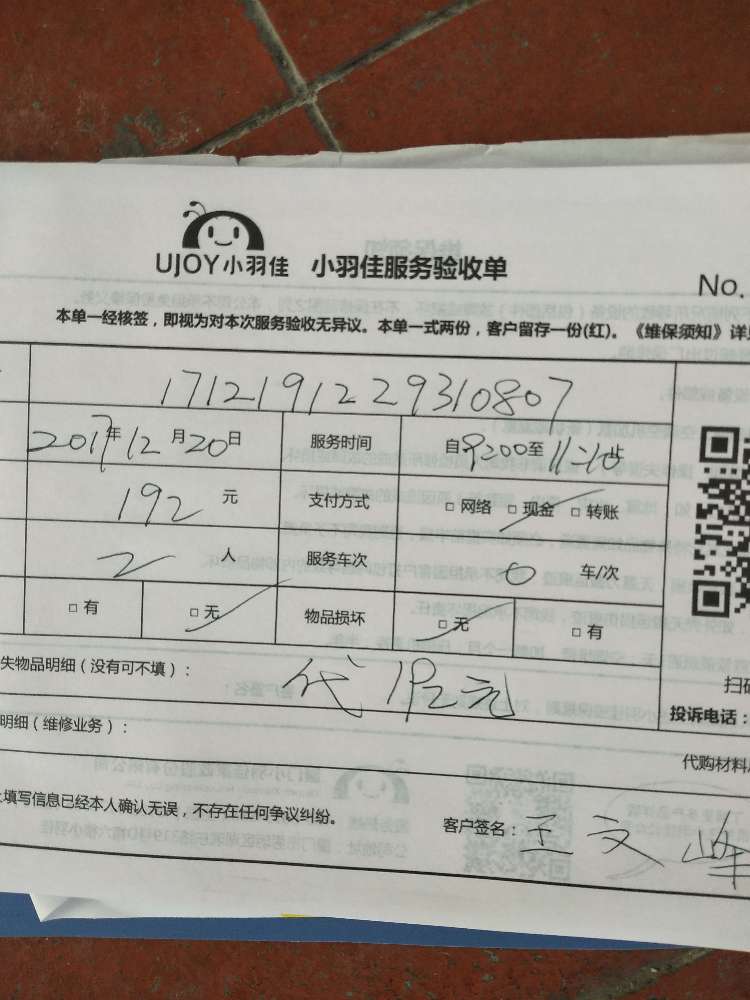 UJOY小羽佳 小羽佳服务验收单
No.
本单一经核签，即视为对本次服务验收无异议。本单一式两份，客户留存一份(红)。《维保须知》详见
1712191229310807
2017年12月20日 服务时间 自9:00至11:10
192元 支付方式 □ 网络 □ 现金 □ 转账
2人 服务车次 0 车/次
□ 有 □ 无 物品损坏 □ 无 □ 有
失物品明细（没有可不填）： 代192元
扫码
投诉电话：
明细（维修业务）：
代购材料
填写信息已经本人确认无误，不存在任何争议纠纷。 客户签名：王文峰